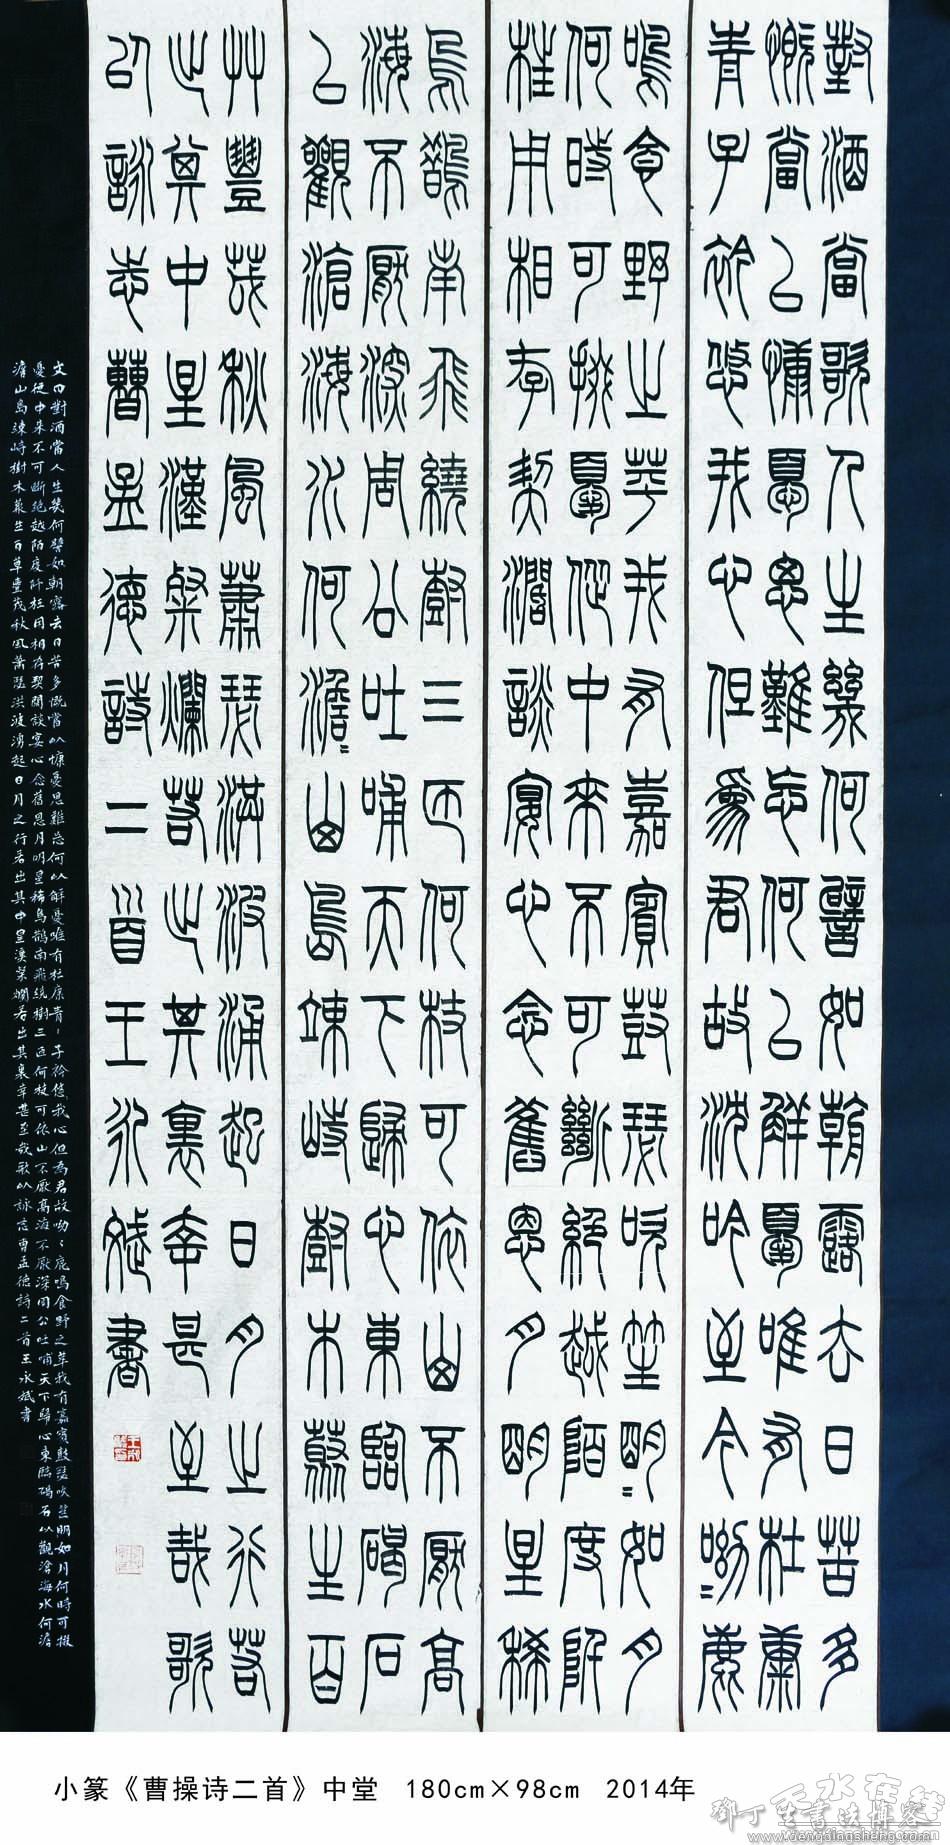 對酒當歌人生幾何譬如朝露去日苦多
慨當以慷憂思難忘何以解憂唯有杜康
青子衿悠我心但為君故沈吟至今呦〻鹿
鳴食野之苹我有嘉賓鼓瑟吹笙明〻如月
何時可掇憂從中來不可斷絕越陌度阡
枉用相存契闊談宴心念舊恩月明星稀
烏鵲南飛繞樹三匝何枝可依山不厭高
海不厭深周公吐哺天下歸心東臨碣石
以觀滄海水何澹〻山島竦峙樹木叢生百
草豐茂秋風蕭瑟洪波涌起日月之行若
出其中星漢粲爛若出其裏幸甚至哉歌
以詠志曹孟德詩二首王永斌書
文曰對酒當人生幾何譬如朝露去日苦多慨當以慷憂思難忘何以解憂唯有杜康青〻子衿悠我心但為君故呦〻鹿鳴食野之苹我有嘉賓鼓瑟吹笙明如月何時可掇
憂從中來不可斷絕越陌度阡枉用相存契闊談宴心念舊恩月明星稀烏鵲南飛繞樹三匝何枝可依山不厭高海不厭深周公吐哺天下歸心東臨碣石以觀滄海水何澹
澹山島竦峙樹木叢生百草豐茂秋風蕭瑟洪波湧起日月之行若出其中星漢粲爛若出其裏幸甚至哉歌以詠志曹孟德詩二首王永斌書
小篆《曹操诗二首》中堂 180cm×98cm 2014年
天水在线
邓丁生書法博客